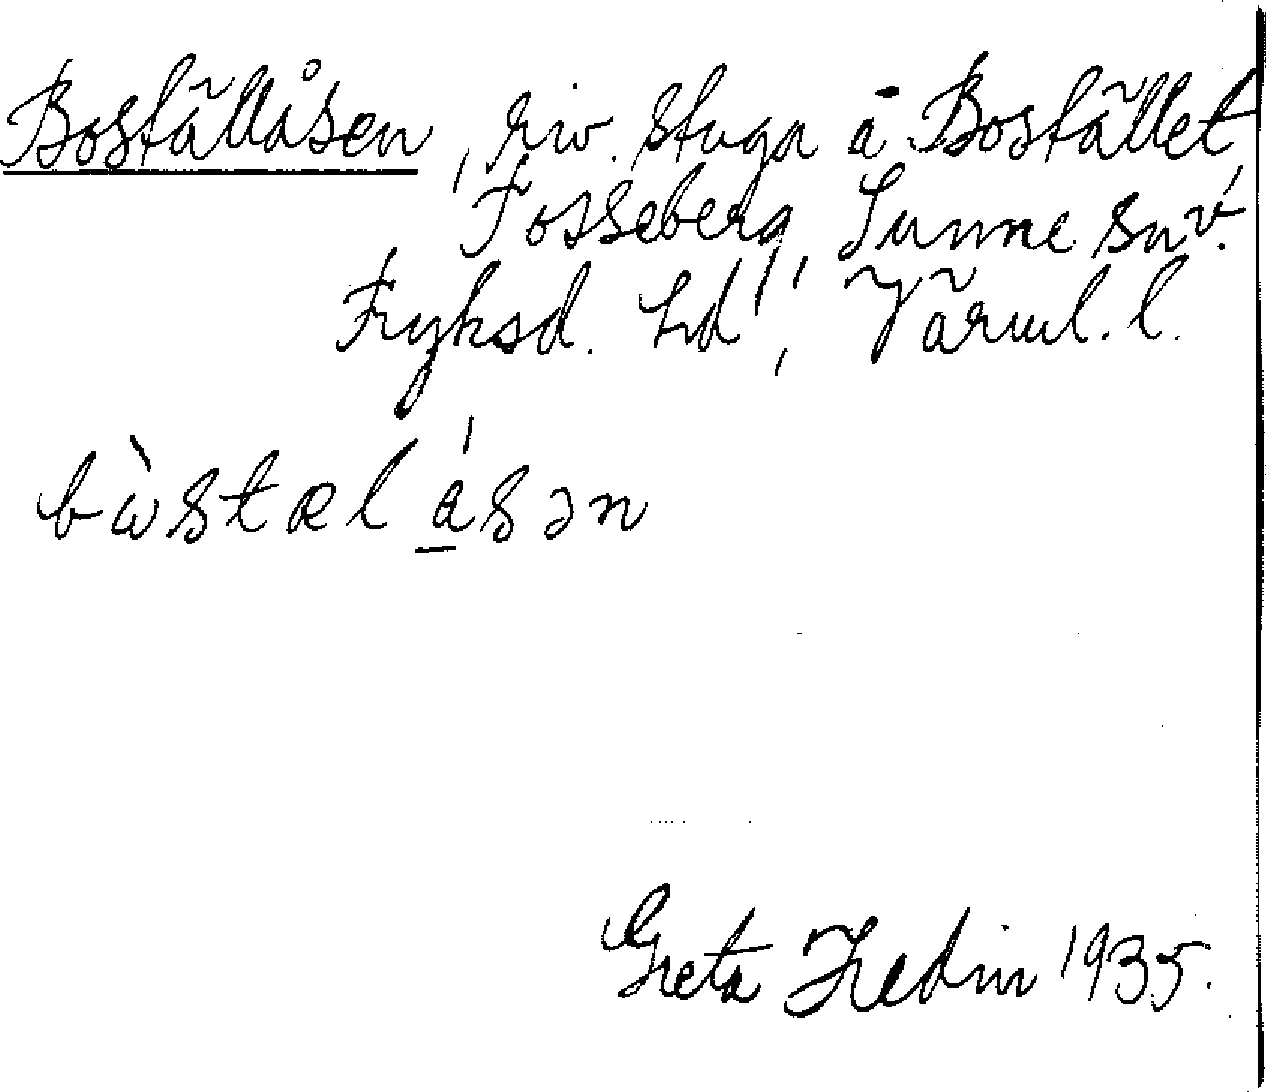 Boställåsen, riv. stuga å Bostället,
Fosseberg, Sunne sn v.
Fryksd. hd, Värml. l.
bὼstælásən
Greta Hedin 1935.